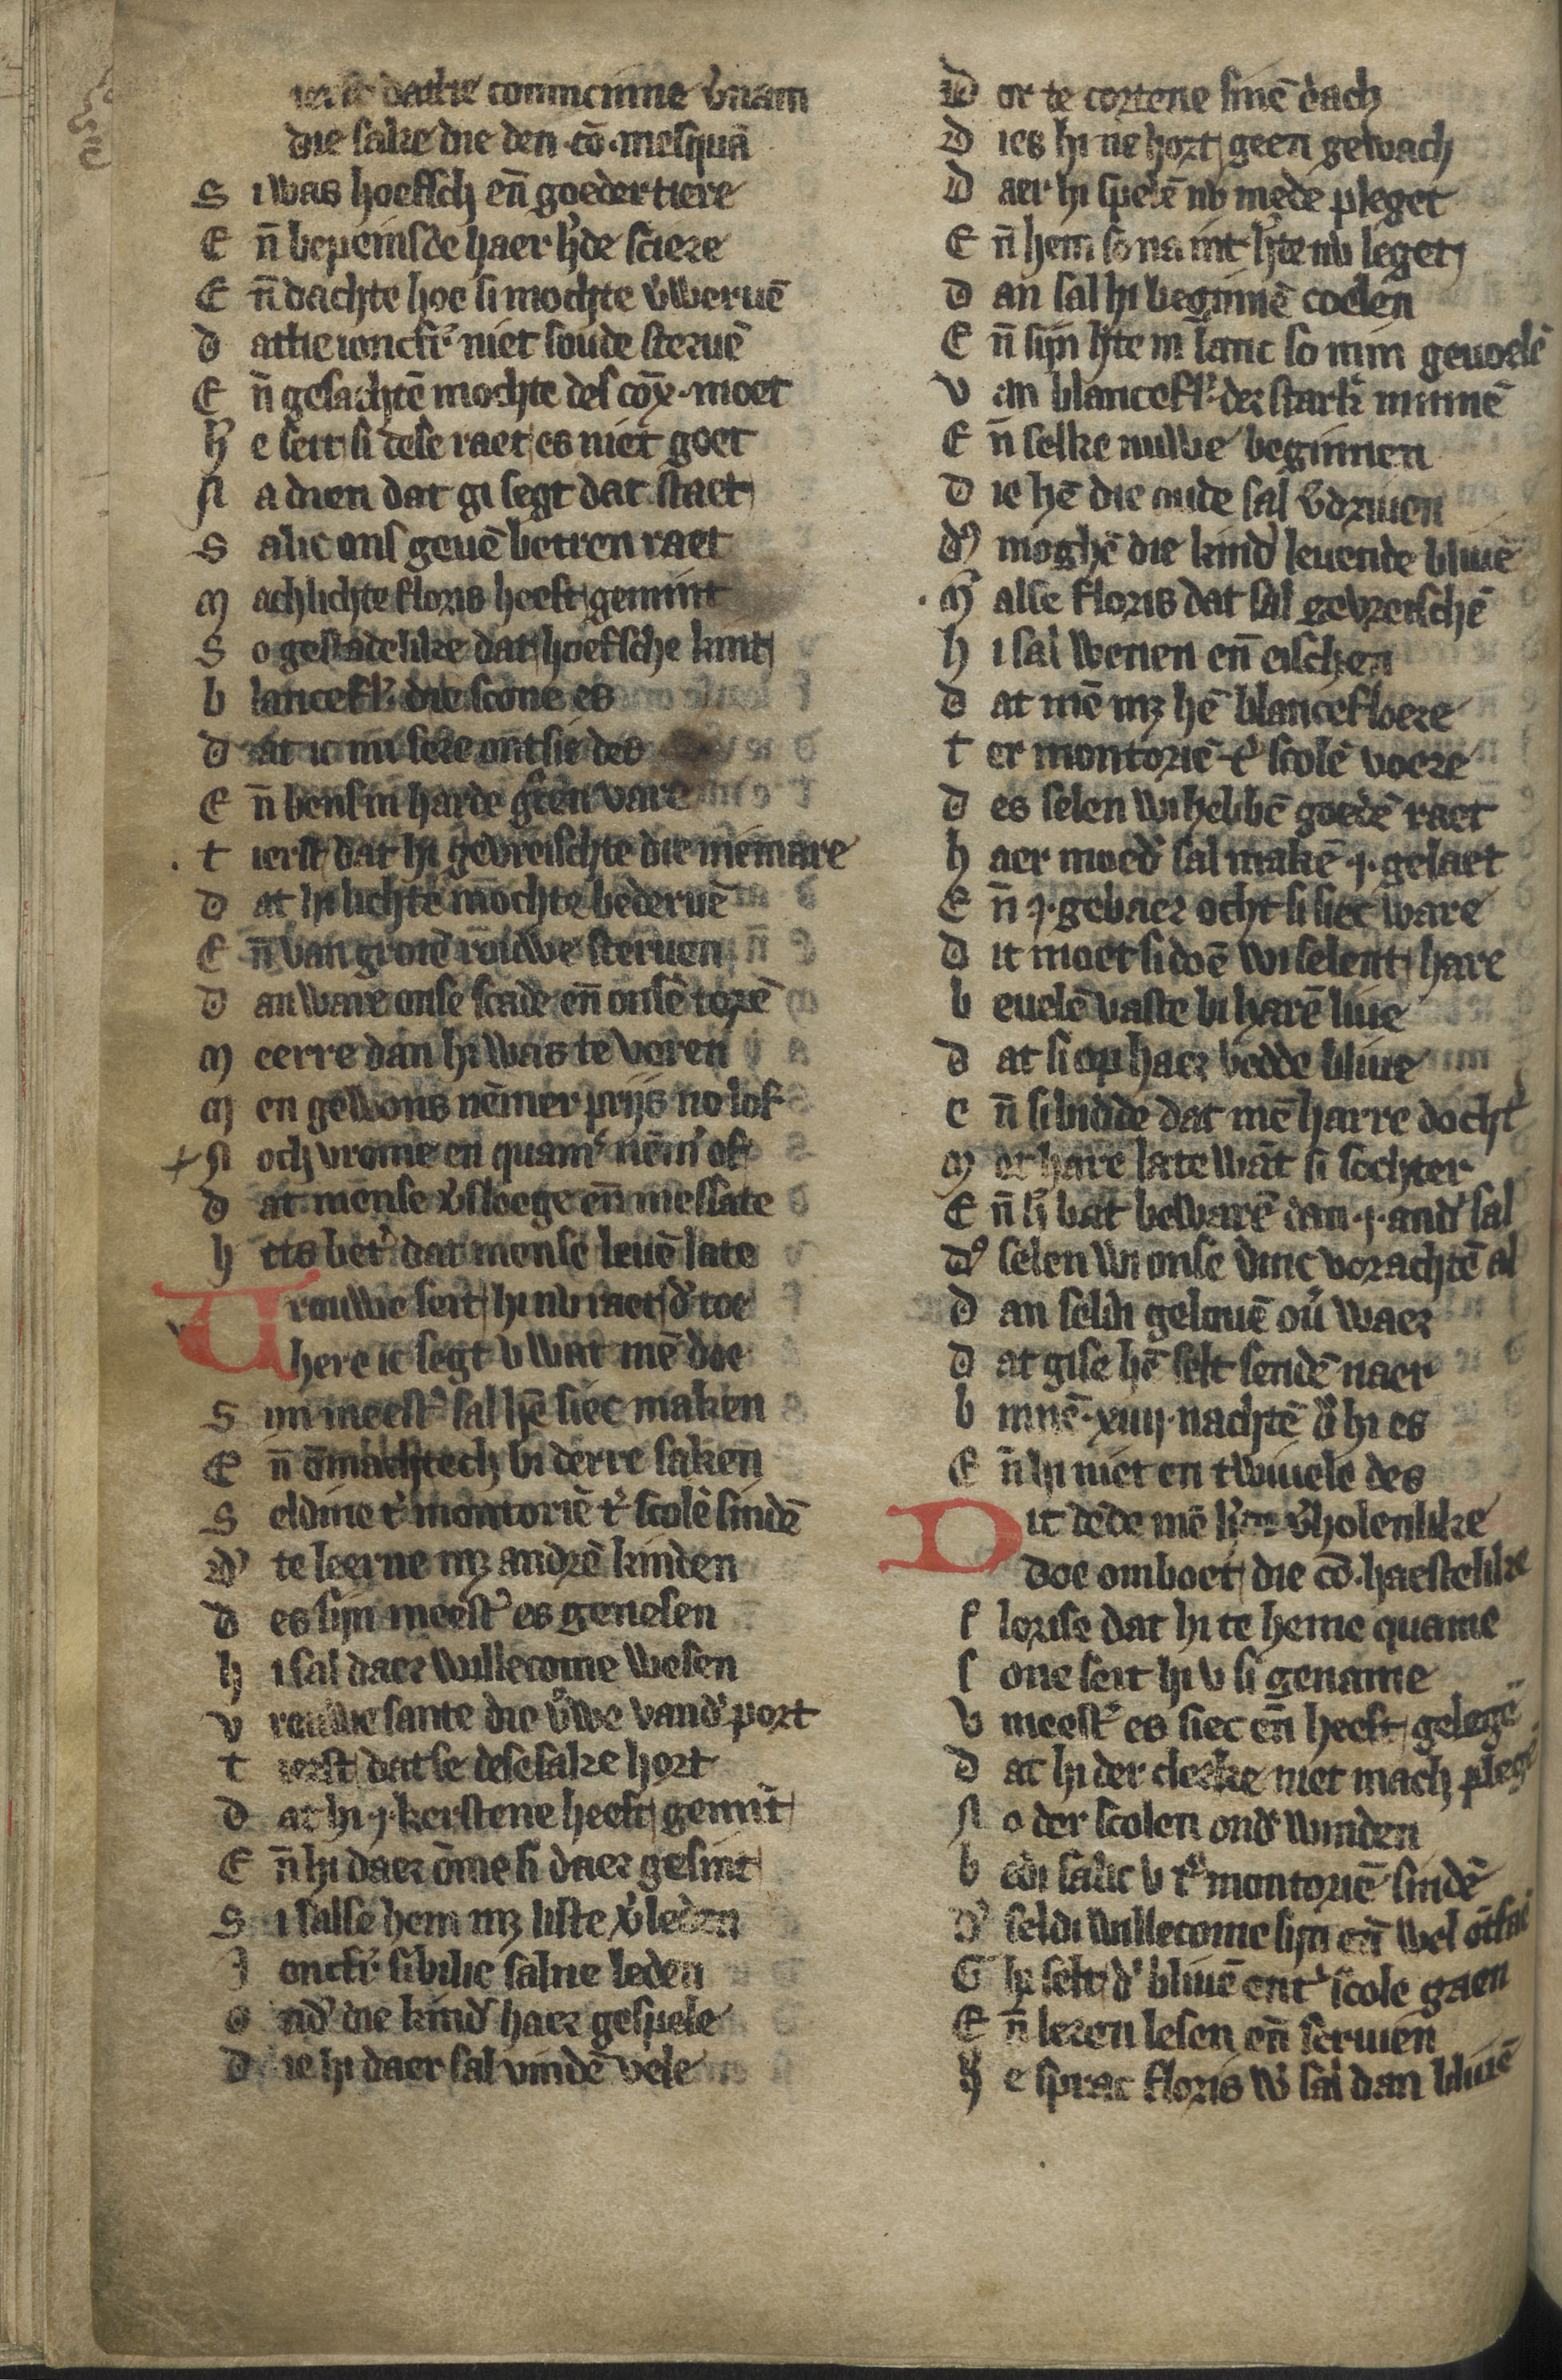 ierst dattie coninc inne v'nam
die sake die den .cō. mesquā
S i was hoefsch en̄ goedertiere
E n̄ bepeinsde haer h'de sciere
E n̄ dachte hoe si mochte v'weruē
d attie ioncfr' niet soude steruē
E n̄ gesachtē mochte des cōx. moet
H' e seit si dese raet es niet goet
N a dien dat gi segt dat staet
S alic ons geuē betren raet
M ach lichte floris heeft gemint
S o gestadelike dat hoefsche kint
b lancefl' die scone es
d at ic mi sere ontsie des
E n̄ bens in harde grōten vare
t ierst dat hi gevreischte die niemare
d at hi lichte mochte bederuē
E n̄ van grotē rouwe steruen
D an ware onse scade en̄ onsē torē
M eerre dan hi was te voren
M en gewōns nēmer prijs no lof
N och vrome en quam' nēm' of
d at mense v'sloege en̄ messate
h ets bet' dat mense leuē late
V rouwe seit hi nv raet d' toe
here ic segt v wat mē doe
S ijn meest' sal hē siec maken
E n̄ ōmachtech bi derre saken
S eldine t' montoriē t' scolē sindē
d' te leerne mz andrē kinden
d es sijn meest' es genesen
h i sal daer willecome wesen
v rouwe sante die v'we vand' port
t ierst dat se dese sake hort
D at hi .j. kerstene heeft gemīt
E n̄ hi daer ōme si daer gesint
S i salse hem mz liste v'leden
J oncfr' sibilie salne leden
o nd' die kind' haer gespele
D ie hi daer sal vindē vele
D or te cortene sinē dach
D ies hi ne hort geen gewach
D aer hi spelē nv mede pleget
E n̄ hem so na int h'te nv leget
D an sal hi beginnē coelen
E n̄ sijn h'te in lanc so min geuoelē
V an blancefl' der stark' minnē
E n̄ selke nuwe beginnen
D ie hē die oude sal v'driuen
d' moghē die kind' leuende bliuē
M' alse floris dat sal gevreischē
h i sal wenen en̄ eischen
d at mē mz hē blancefloere
t er montoriē t' scolē voere
d es selen wi hebbē goedē raet
h aer moed' sal makē .j. gelaet
E n̄ .j. gebaer ocht si siec ware
D it moet si doē wi selent hare
b euelē vaste bi harē liue
d at si op haer bedde bliue
E n̄ si bidde dat mē harre docht'
M et hare late wāt si sochter
E n̄ si' bat bewarē dan .j. and' sal
d' selen wi onse dinc vorachtē al
d an seldi gelouē ou' waer
d at gise hē selt sendē naer
b innē .xiiij. nachtē d' hi es
E n̄ hi niet en twiuele des
D it dede mē h'in v'holenlike
doe omboet die cō. haestelike
f lorise dat hi te heme quame
s one seit hi v si gename
V meest' es siec en̄ heeft gelegē
d at hi der clerke niet mach plegē
N o der scolen ond'winden
b edi salic v t' montoriē sindē
d' seldi willecome sijn en̄ wel ōtfaē
G hi selt d' bliuē ent' scole gaen
E n̄ leren lesen en̄ scriuen
H' e sprac floris w' sal dan bliuē